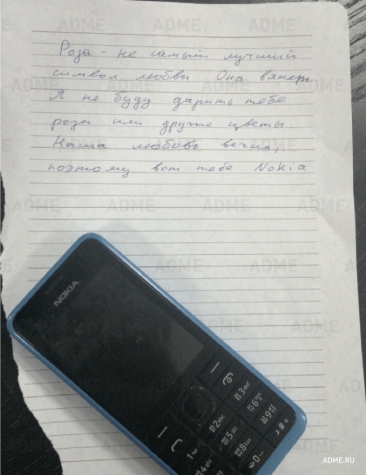 Роза - не самый лучший
символ любви. Она вянет.
Я не буду дарить тебе
розы или другие цветы.
Наша любовь вечна,
поэтому вот тебе Nokia
NOKIA
ADME.RU